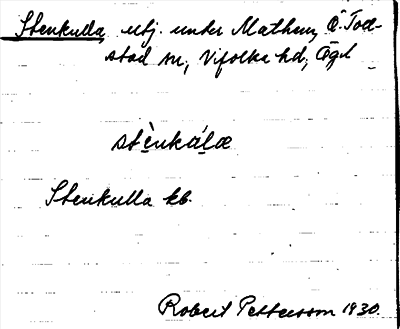 Stenkulla, utj. under Mathem, Ö. Tod-
stad sn, Vifolka hd, Ögl
stènkúlæ
Stenkulla kb.
Robert Pettersson 1930.